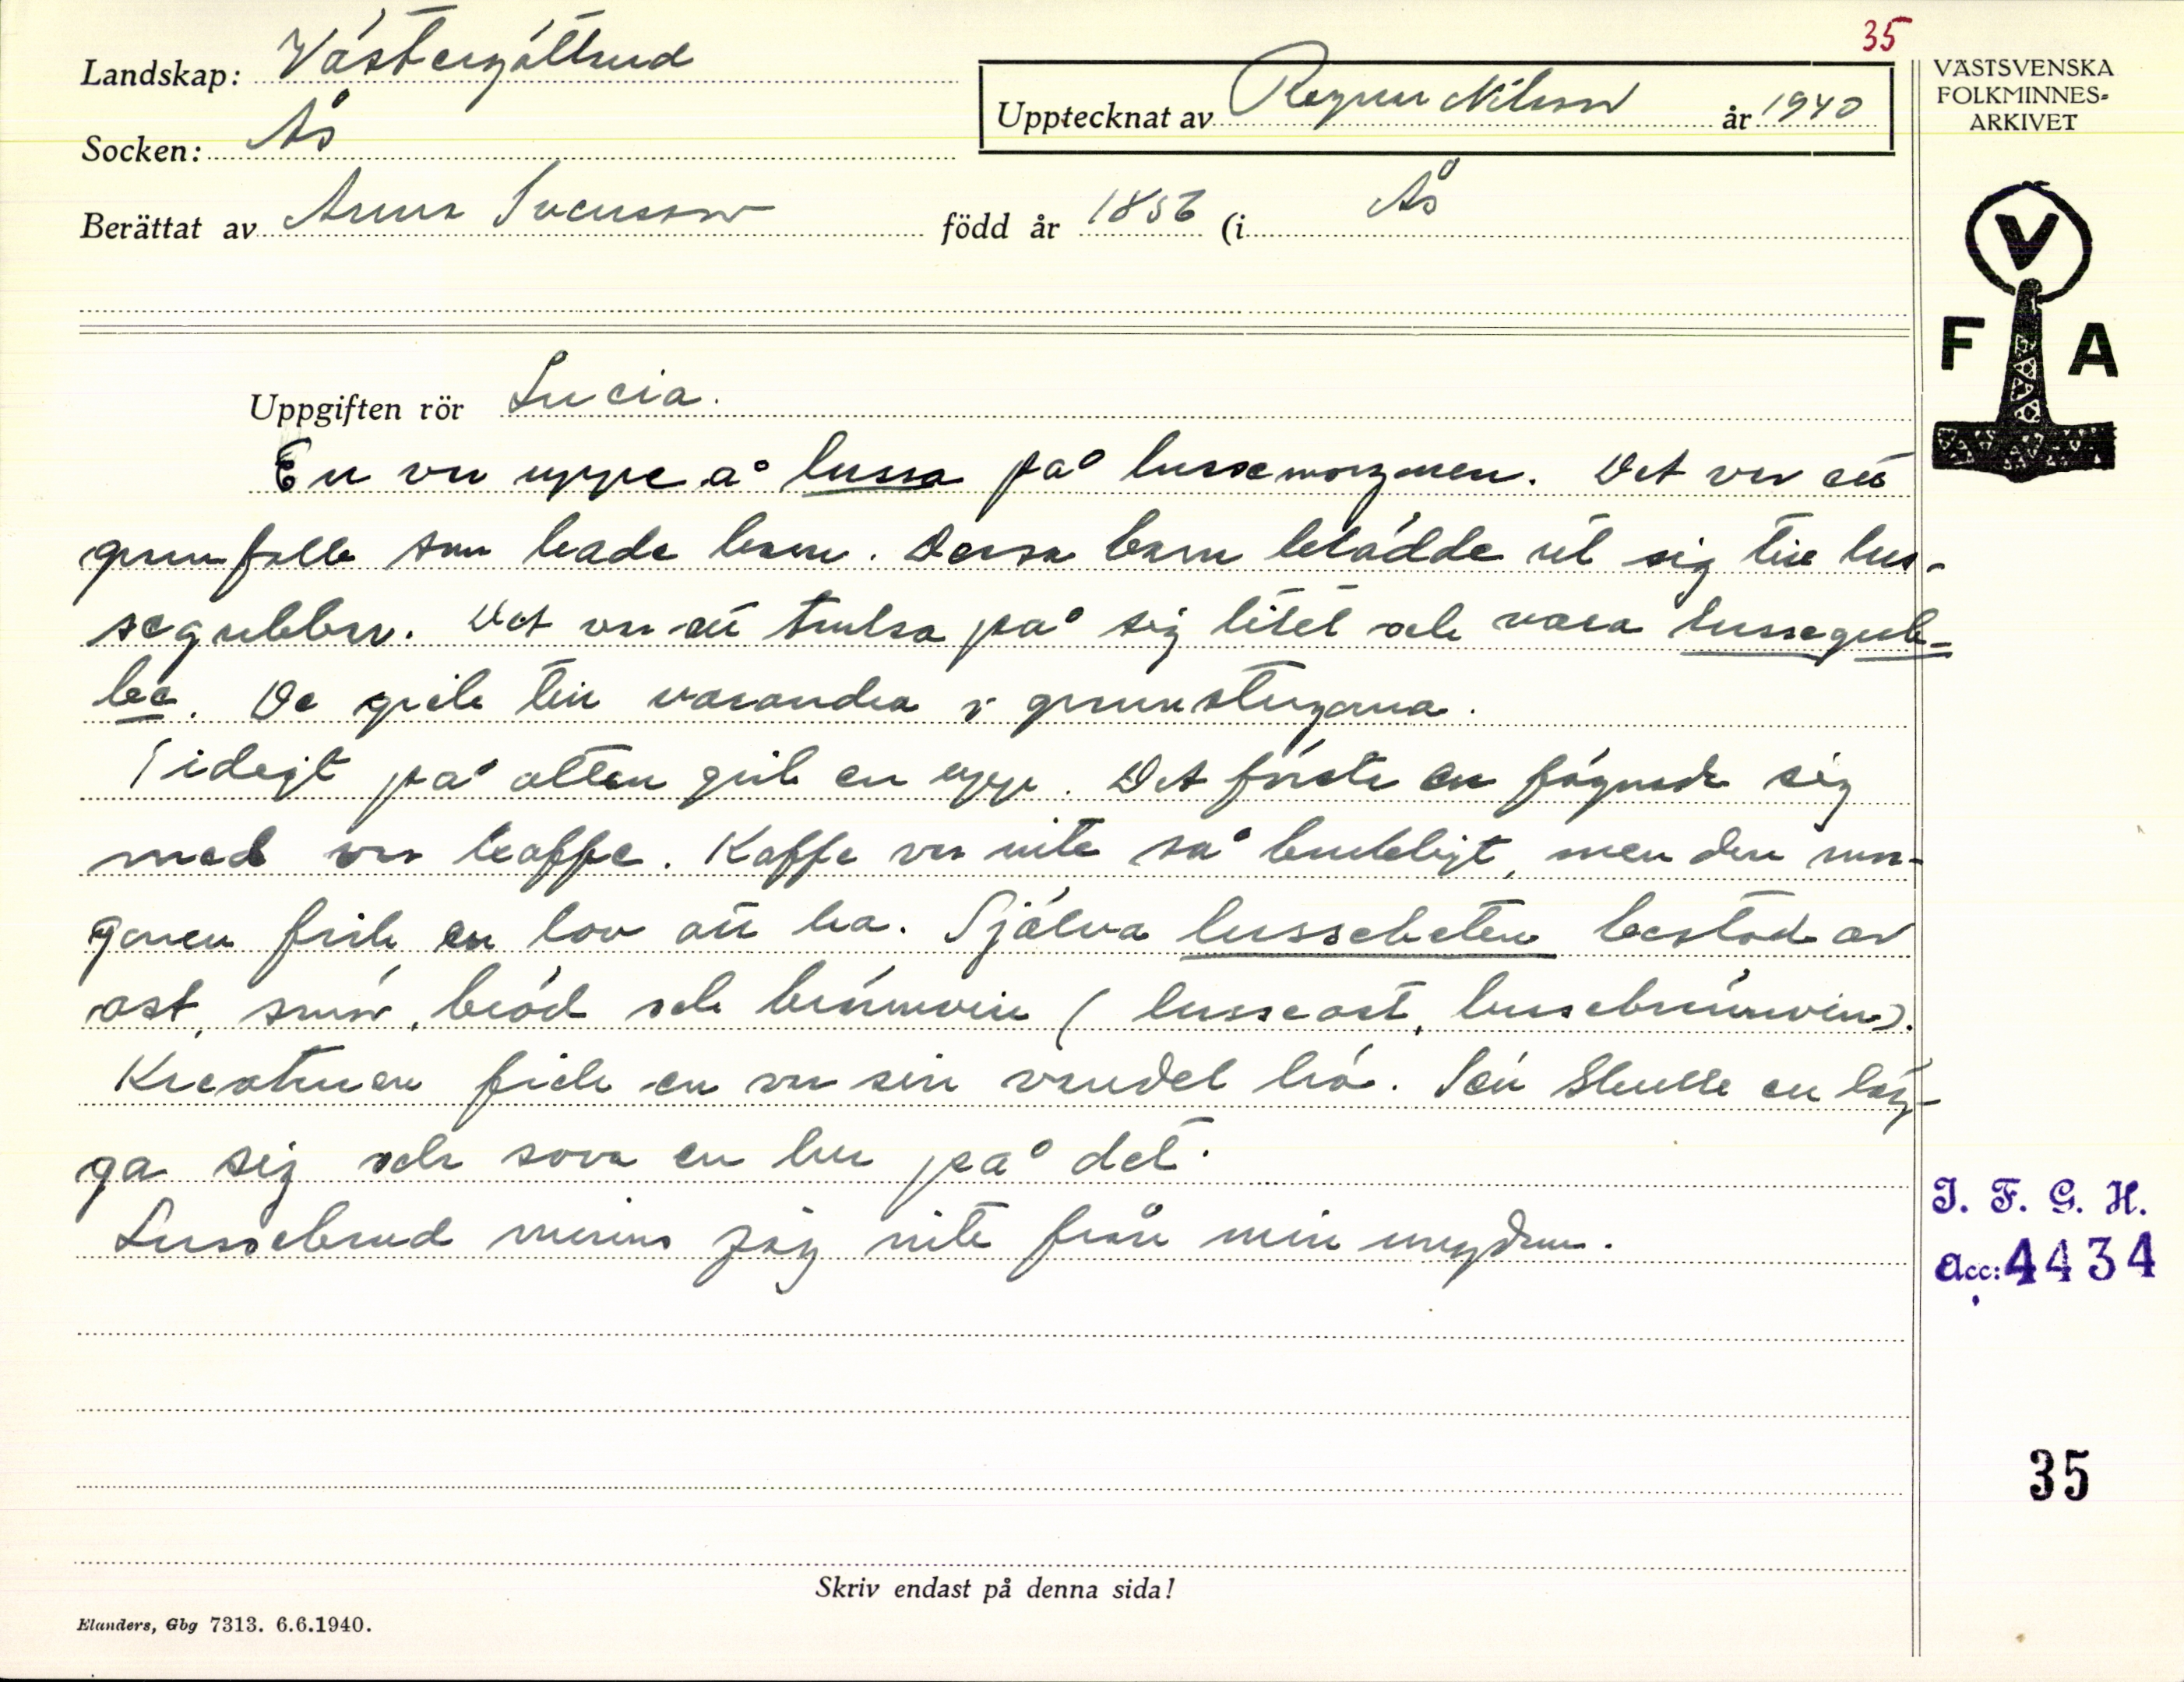 35
Landskap: Västergötland
Upptecknat av Ragnar Nilsson år 1940
VÄSTSVENSKA
FOLKMINNES-
ARKIVET
Socken: Ås
Berättat av Anna Svensson född år 1856 (i Ås
V
F A
Uppgiften rör Lucia.
En var uppe å lussa på lussemorgonen. Det var ett
grannfolk som hade barn. Dessa barn klädde ut sig till lus-
segubbar. Det var att trulsa på sig litet och vara lussegub-
be. De gick till varandra i grannstugorna.
Tidigt på otten gick en upp. Det första en fägnade sig
med var kaffe. Kaffe var inte så brukligt, men den mor-
gonen fick en lov att ha. Själva lussebeten bestod av
ost, smör, bröd och brännvin (lusseost, lussebrännvin).
Kreaturen fick en var sin vandel hö. Sen skulle en läg-
ga sig och sova en lur på det.
Lussebrud minns jag inte från min ungdom.
I. F. G. H.
Acc: 4434
35
Skriv endast på denna sida!
Elanders, Gbg 7313. 6.6.1940.